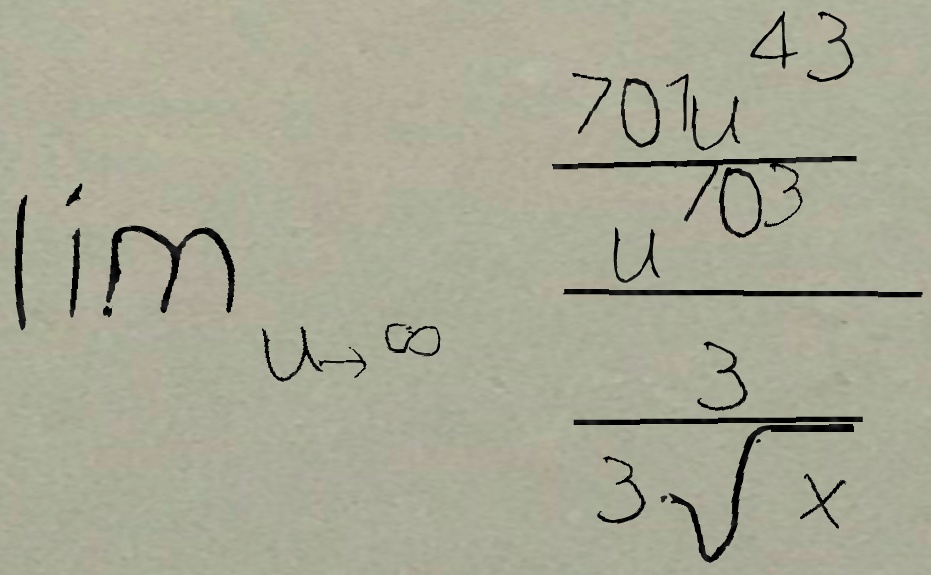 \lim_{u \to \infty} \frac{\frac{701u^{43}}{u^{703}}}{\frac{3}{3 \cdot \sqrt{x}}}